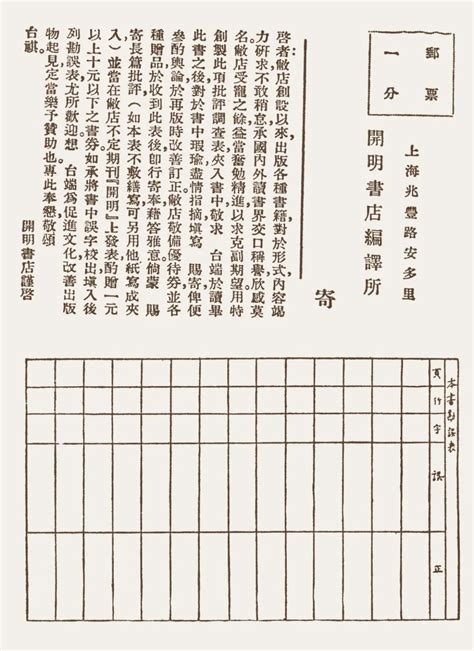 郵票
一分
上海兆豐路安多里
開明書店編譯所
寄
啓者敝店創設以來，出版各種書籍對於形式內容竭
力研求不敢稍怠承國內外讀書界交口稱譽欣感莫
名敝店受寵之餘益當奮勉精進以求克副期望用特
創製此項批評調查表夾入書中敬求　台端於讀畢
此書之後，對於書中瑕瑜盡情指摘填寫　賜寄俾便
參酌輿論於再版時改善訂正敝店敬備優待券並各
種贈品於收到此表後即行寄奉藉答雅意倘蒙　賜
寄長篇批評（如本表不敷繕寫可另用他紙寫成夾
入）並當在敝店不定期刊『開明』上發表酌贈一元
以上十元以下之書券如承將書中誤字校出填入後
列勘誤表尤所歡迎想　台端爲促進文化改善出版
物起見定當樂予贊助也專此奉懇敬頌
台祺。
開明書店謹啓
本書勘誤表
頁
行
字
誤
正